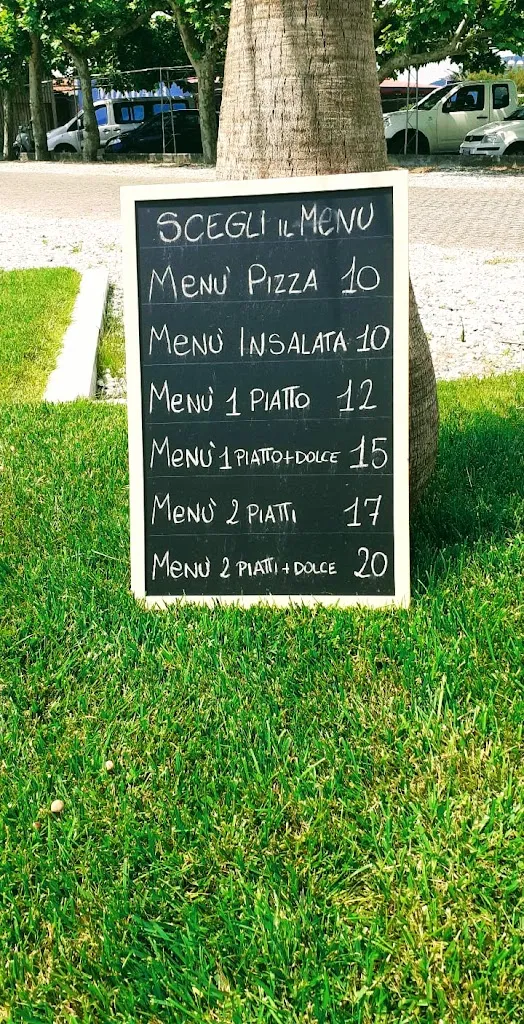 SCEGLI IL MENU
MENU' PIZZA 10
MENÙ INSALATA 10
MENÙ 1 PIATTO 12
MENÙ 1 PIATTO+DOLCE 15
MENÙ 2 PIATTI 17
MENÙ 2 PIATTI+DOLCE 20